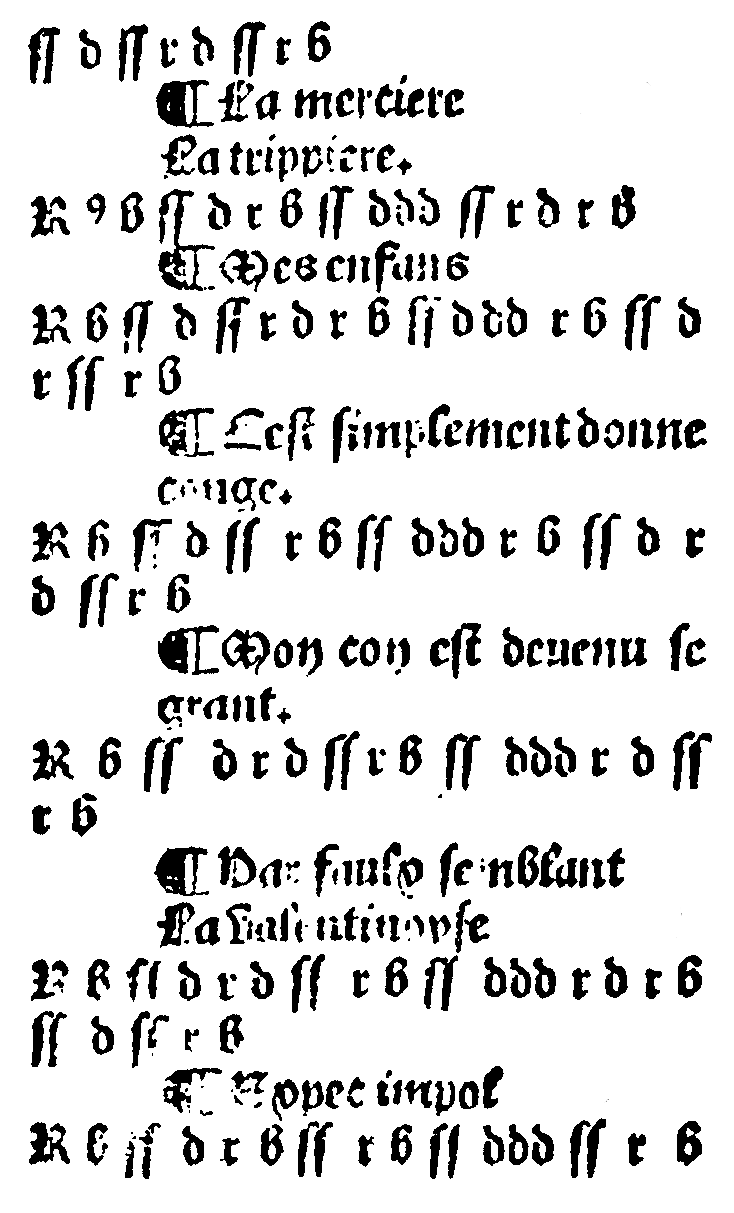 ſſ d ſſ r d ſſ r b
¶ La merciere
La trippiere.
R 9 b ſſ d r b ſſ ddd ſſ r d r b
¶ Mes enfans
R b ſſ d ſſ r d r b ſſ ddd r b ſſ d
r ſſ r b
¶ Ceſt ſimplement donne
conge.
R b ſſ d ſſ r b ſſ ddd r b ſſ d r
d ſſ r b
¶ Mon con eſt deuenu ſe
grant.
R b ſſ d r d ſſ r b ſſ ddd r d ſſ
r b
¶ Par faulx ſemblant
La valentinoyſe
R b ſſ d r d ſſ r b ſſ ddd r d r b
ſſ d ſſ r b
¶ impol
R b ſſ d r b ſſ r b ſſ ddd ſſ r b